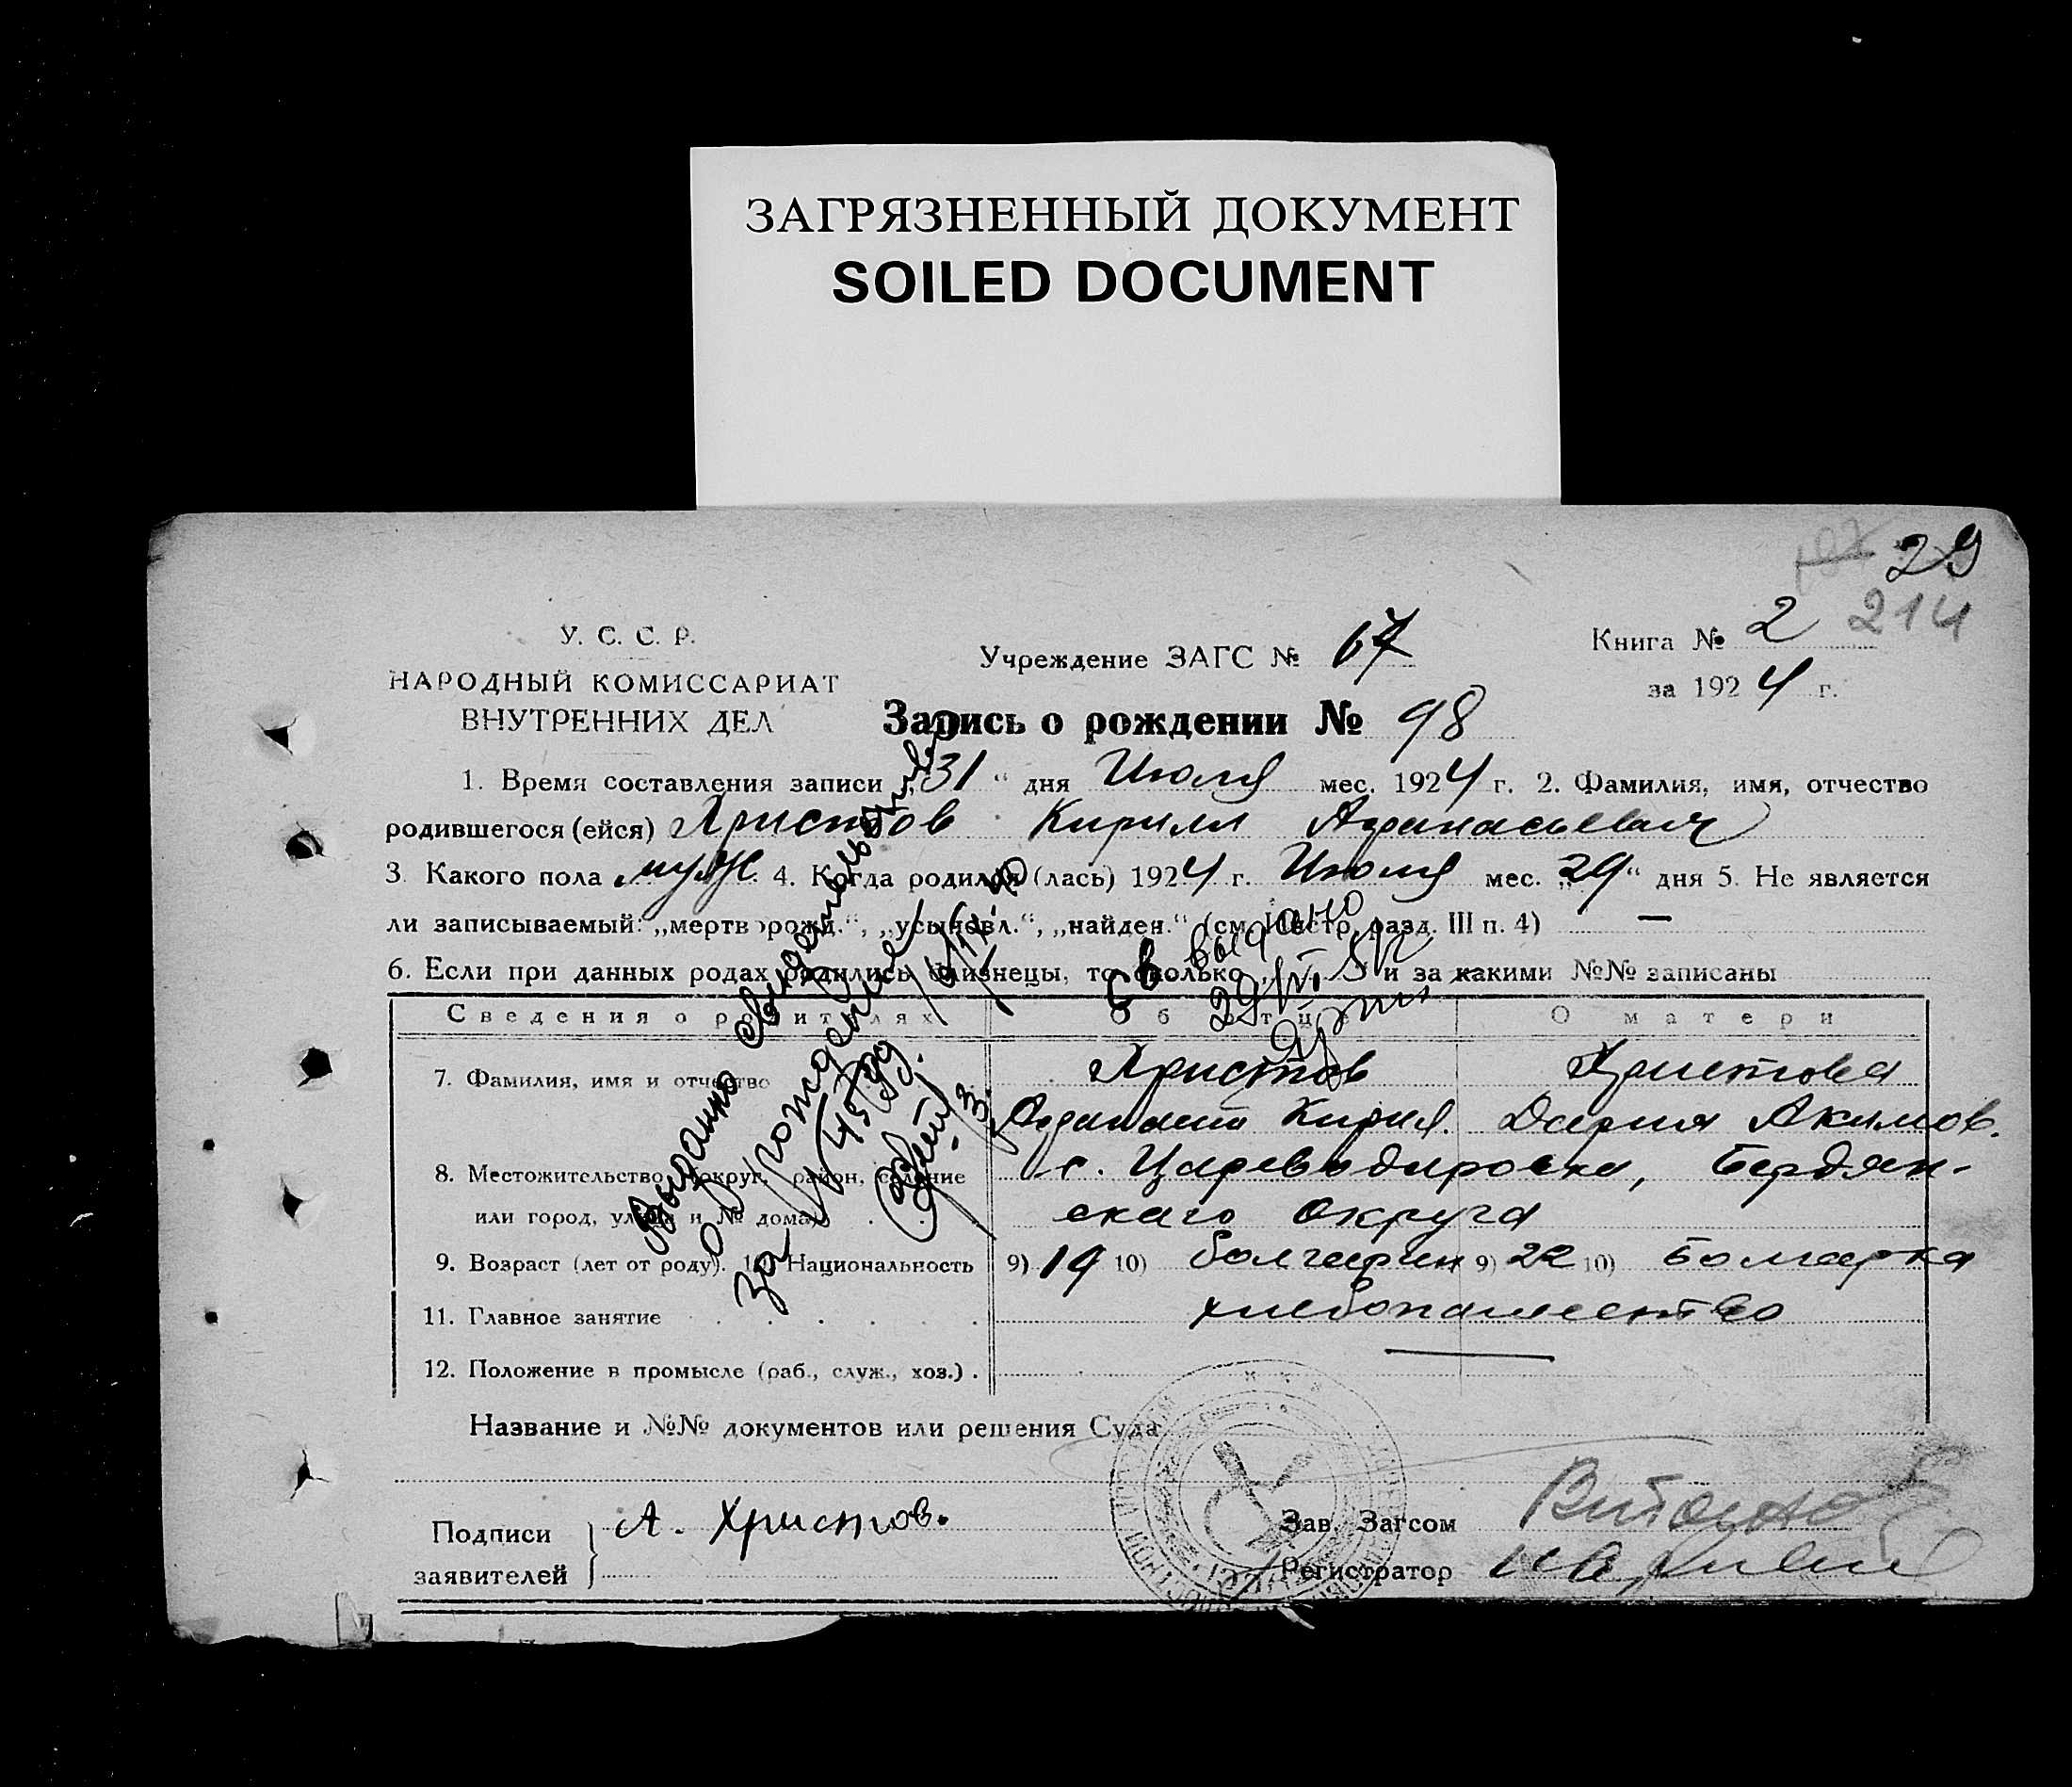 ЗАГРЯЗНЕННЫЙ ДОКУМЕНТ
SOILED DOCUMENT
29
214
У. С. С. Р.
НАРОДНЫЙ КОМИССАРИАТ
ВНУТРЕННИХ ДЕЛ
Учреждение ЗАГС № 67
Книга № 2
за 1924 г.
Запись о рождении № 98
1. Время составления записи „31“ дня Июля мес. 1924 г. 2. Фамилия, имя, отчество
родившегося (ейся) Христов Кирилл Афанасьевич
3. Какого пола муж. 4. Когда родился (лась) 1924 г. Июля мес. „29“ дня 5. Не является
ли записываемый: „мертворожд.“, „усыновл.“, „найден.“ (см. Инстр. разд. III п. 4) —
6. Если при данных родах родились близнецы, то сколько и за какими №№ записаны
Выдано свидетельство
о рождении
за № 45799
Св выдано
Сведения о родителях Об отце О матери
7. Фамилия, имя и отчество Христов Христова
Афанасий Кирил. Дария Акимов.
8. Местожительство (округ, район, селение с. Цареводаровка, Бердян-
или город, улица и № дома) скаго Округа
9. Возраст (лет от роду). 10. Национальность 9) 19 10) болгарин 9) 22 10) Болгарка
11. Главное занятие хлебопашество
12. Положение в промысле (раб., служ., хоз.) .
Название и №№ документов или решения Суда
Подписи
заявителей
А. Христов.
Зав. Загсом
Регистратор